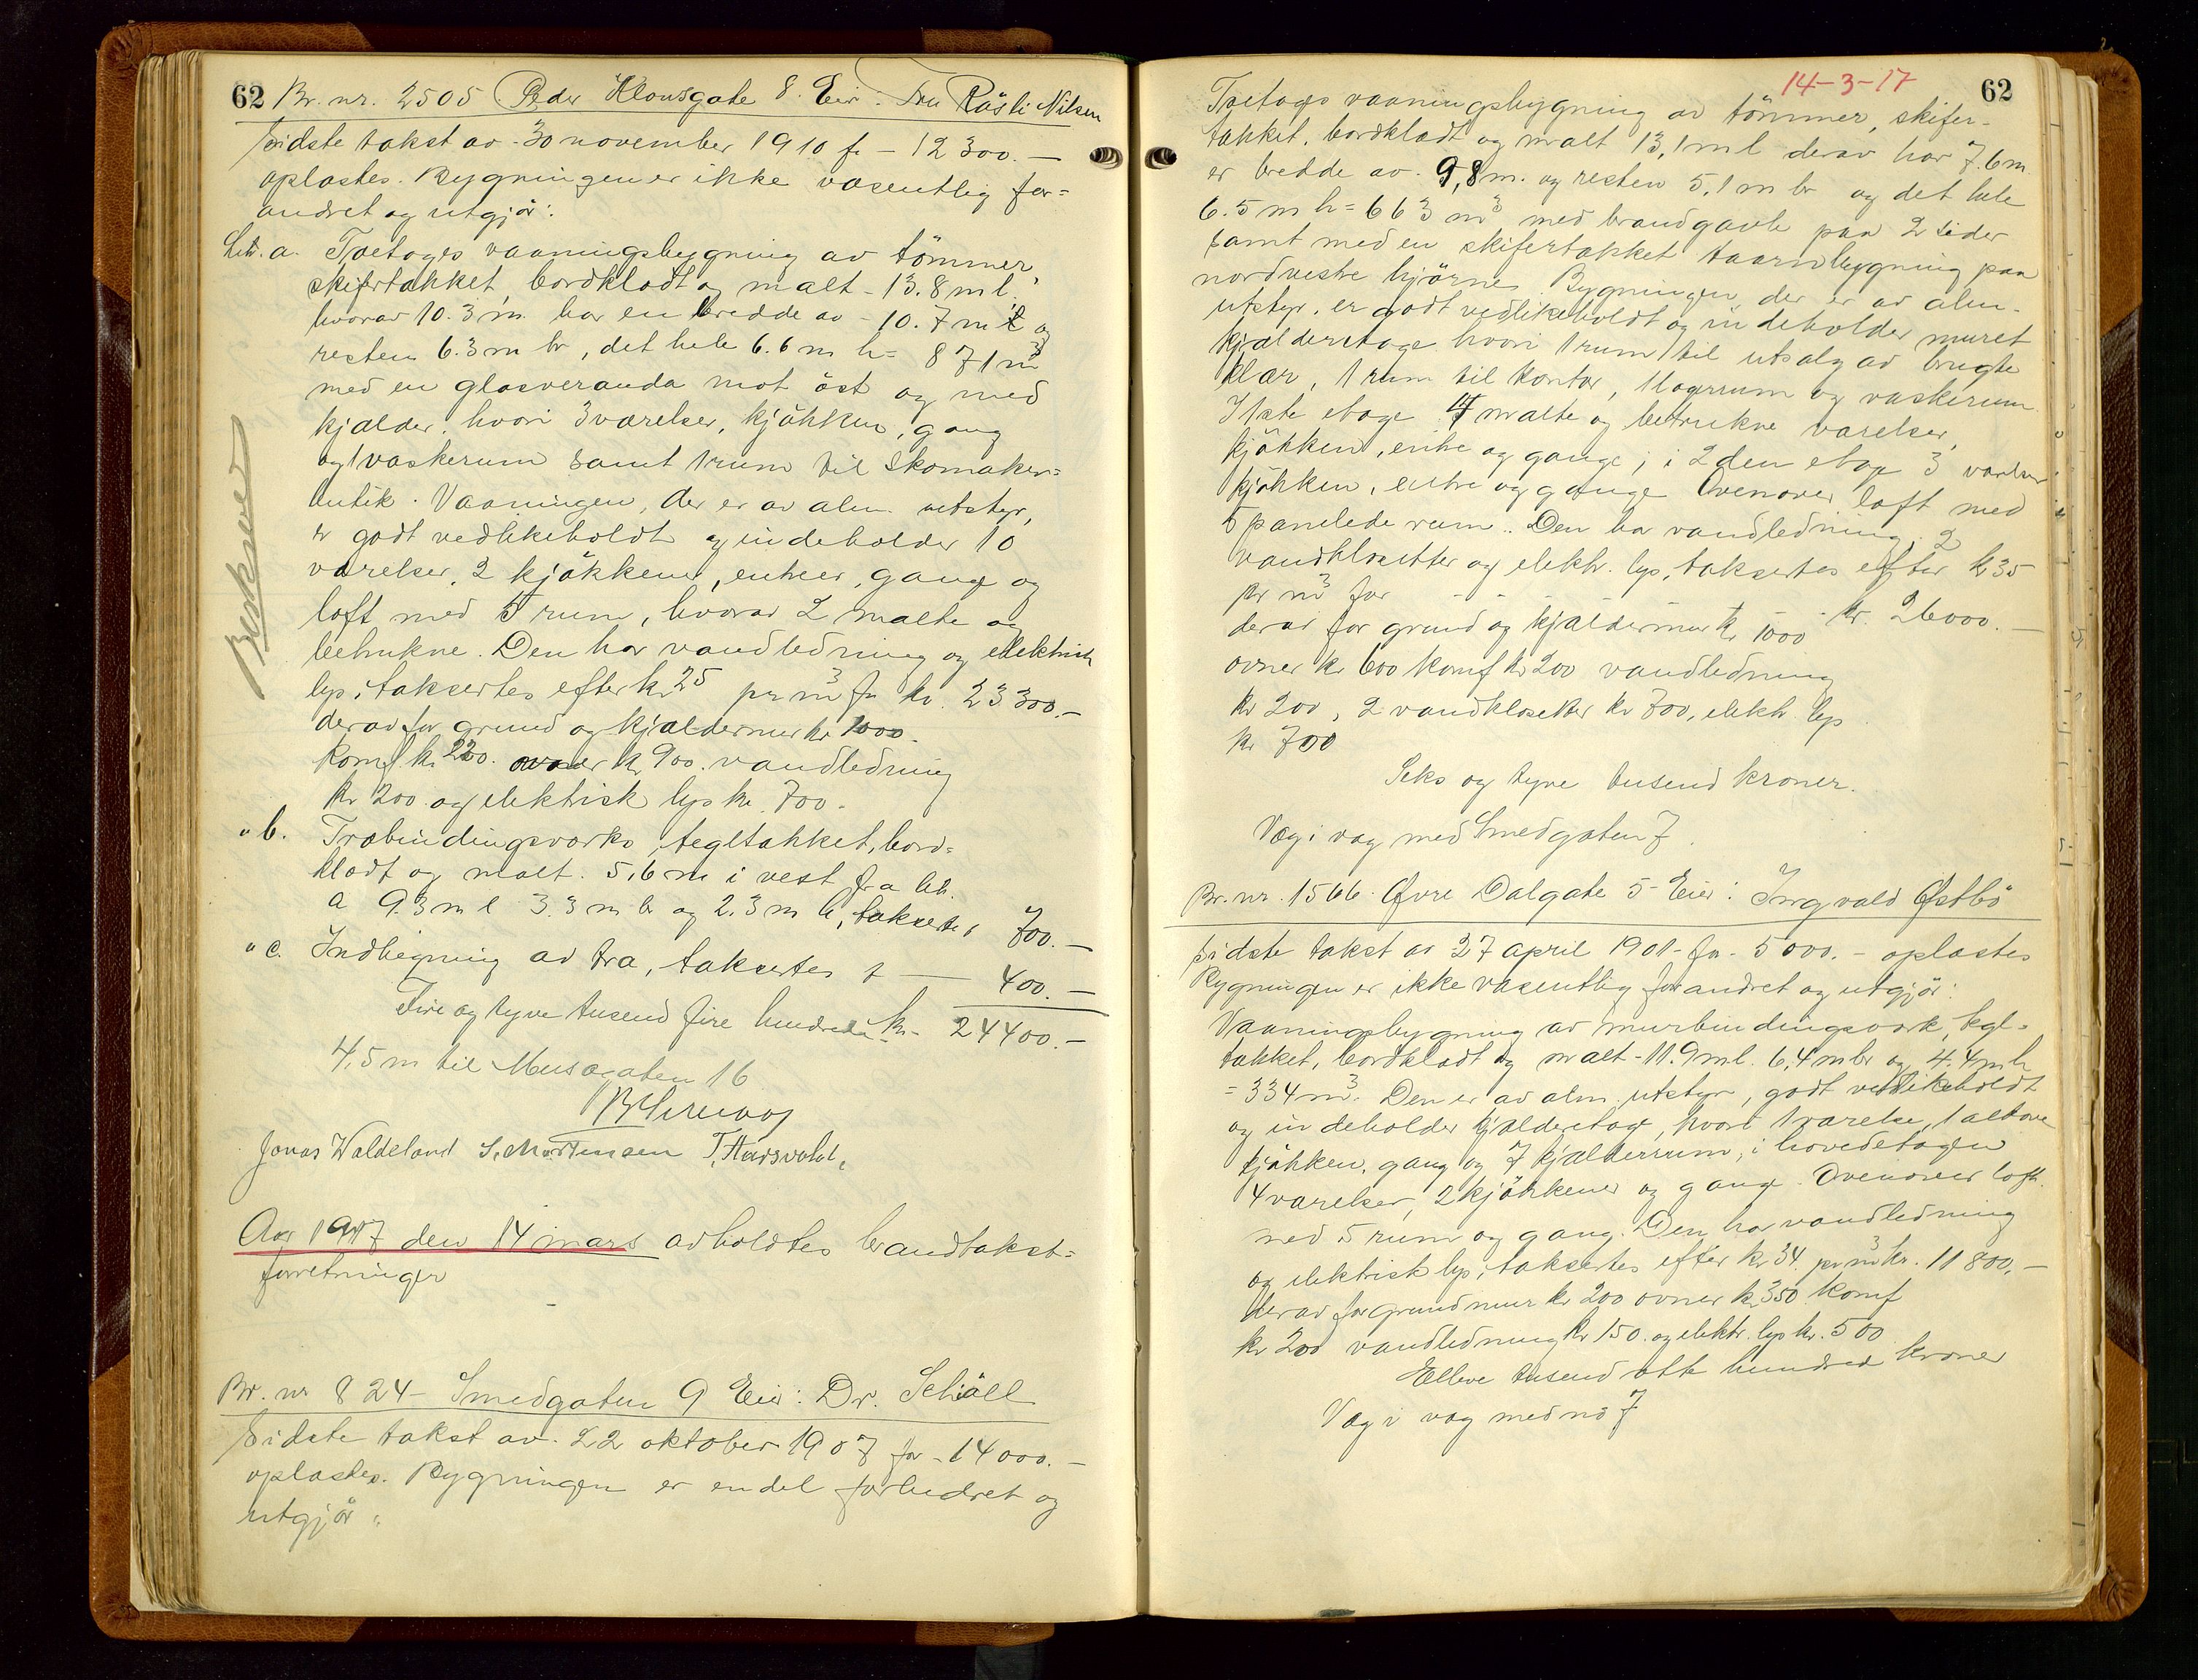 62 Br. nr. 2505 Peder Klousgate 8. Eier: Fru Råsli Nilsen
Sidste takst av 30 november 1910 fr - 12300.-
oplæstes. Bygningen er ikke væsentlig for=
andret og utgjør:
Litr. a. Toetages vaaningsbygning av tömmer,
skifertækket, bordklædt og malt - 13.8 m l.
hvorav 10.3 m har en bredde av - 10.7 m og
resten 6.3 m br, det hele 6.6 m h = 871 m3
med en glasveranda mot öst og med
kjælder, hvori 3 værelser, kjökken, gang
og 1 vaskerum samt 1 rum til skomaker=
butik. Vaaningen, der er av alm. utstyr,
er godt vedlikeholdt og indeholder 10
værelser, 2 kjökkener, entreer, gange og
loft med 5 rum, hvorav 2 malte og
betrukne. Den har vandledning og elektrisk
lys, taksertes efter kr 25 pr m3 fr kr. 23300.-
derav for grund og kjældermur kr 1000.
Komf. kr 220. ovner kr 900. vandledning
kr 200 og elektrisk lys kr. 700.
Beskrevet
" b. Træbindingsverks, tegltækket, bord=
klædt og malt. 5,6 m i vest fra litr.
a 9.3 m l 3.3 m br og 2.3 m h, taksertes 700.-
" c. Indhegning av træ, taksertes f - 400.-
Fire og tyve tusend fire hundrede kr. 24400.-
4,5 m til Musægaten 16
Jonas Waldeland S. Mortensen T. Harsvold.
Aar 1917 den 14 mars avholdtes brandtakst=
forretninger
Br. nr 824 - Smedgaten 9 Eier: Dr. Schiöll
Sidste takst av 22 oktober 1907 for - 14000.-
oplæstes. Bygningen er endel forbedret og
utgjör:
14-3-17 62
Toetages vaaningsbygning av tömmer, skifer-
tækket, bordklædt og malt 13,1 m l derav har 7.6 m
er bredde av 9,8 m. og resten 5,1 m br og det hele
6.5 m h = 663 m3 med brandgavle paa 2 sider
samt med en skifertækket taarnbygning paa
nordvestre hjörne. Bygningen, der er av alm.
utstyr, er godt vedlikeholdt og indeholder muret
kjælderetage hvori 1 rum til utsalg av brugte
klær, 1 rum til kontor, 1 lagerrum og vaskerum.
I 1ste etage 4 malte og betrukne værelser,
kjökken, entre og gange; i 2den etage 3 værelser
kjökken, entre og gange Ovenover loft med
5 panelede rum. Den har vandledning, 2
vandklosetter og elektr. lys, taksertes efter kr 35
pr m3 for - - - - - kr. 26000.-
derav for grund og kjældermur kr 1000
ovner kr 600 komf kr 200 vandledning
kr 200, 2 vandklosetter kr 700, elektr lys
kr 700
Seks og tyve tusend kroner.
Væg i væg med Smedgaten 7.
Br. nr. 1566. Øvre Dalgate 5 - Eier: Ingvald Østbö
Sidste takst av 27 april 1901 - for - 5000.- oplæstes
Bygningen er ikke væsentlig forandret og utgjör:
Vaaningsbygning av murbindingsverk, tegl=
tækket, bordklædt og malt - 11.9 m l. 6,4 m br og 4.4 m h
= 334 m3. Den er av alm. utstyr, godt vedlikeholdt
og indeholder kjælderetage, hvori 1 værelse, 1 alkove
kjökken, gang og 7 kjælderrum; i hovedetagen
4 værelser, 2 kjökkener og gang. Ovenover loft
med 5 rum og gang. Den har vandledning
og elektrisk lys, taksertes efter kr 34 pr m3 kr. 11800.-
derav for grundmur kr 200 ovner kr 350 komf
kr 200 vandledning kr 150. og elektr. lys kr. 500
Elleve tusend otte hundrede kroner
Væg i væg med no 7